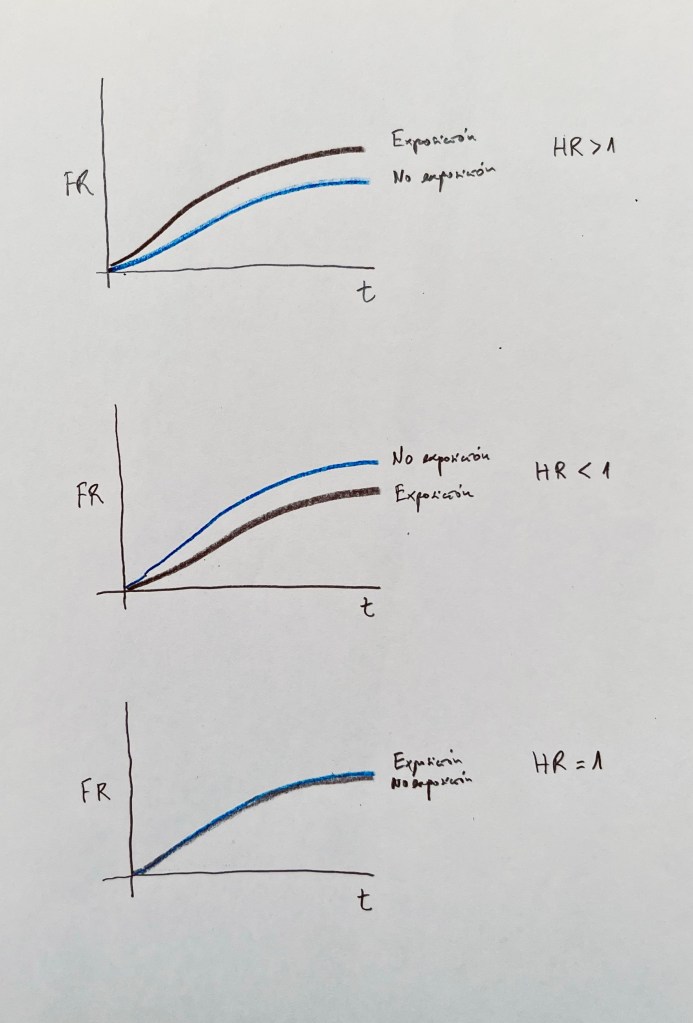 Exposición
HR > 1
No exposición
FR
t
No exposición
HR < 1
Exposición
FR
t
Exposición
HR = 1
No exposición
FR
t